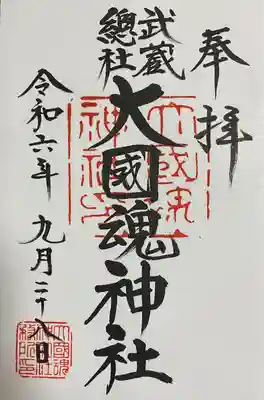 奉拝
武蔵
總社
大國魂神社
令和六年 九月二十八日